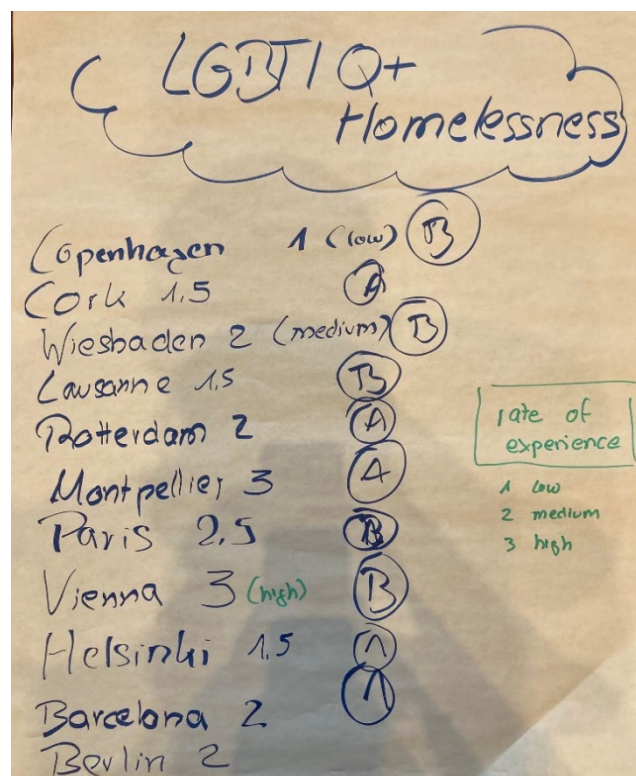 LGBTIQ+
Homelessness
Copenhagen 1 (low) B
Cork 1.5 A
Wiesbaden 2 (medium) B
Lausanne 1.5 B
Rotterdam 2 A
Montpellier 3 A
Paris 2.5 B
Vienna 3 (high) B
Helsinki 1.5 A
Barcelona 2 A
Berlin 2
rate of
experience
1 low
2 medium
3 high